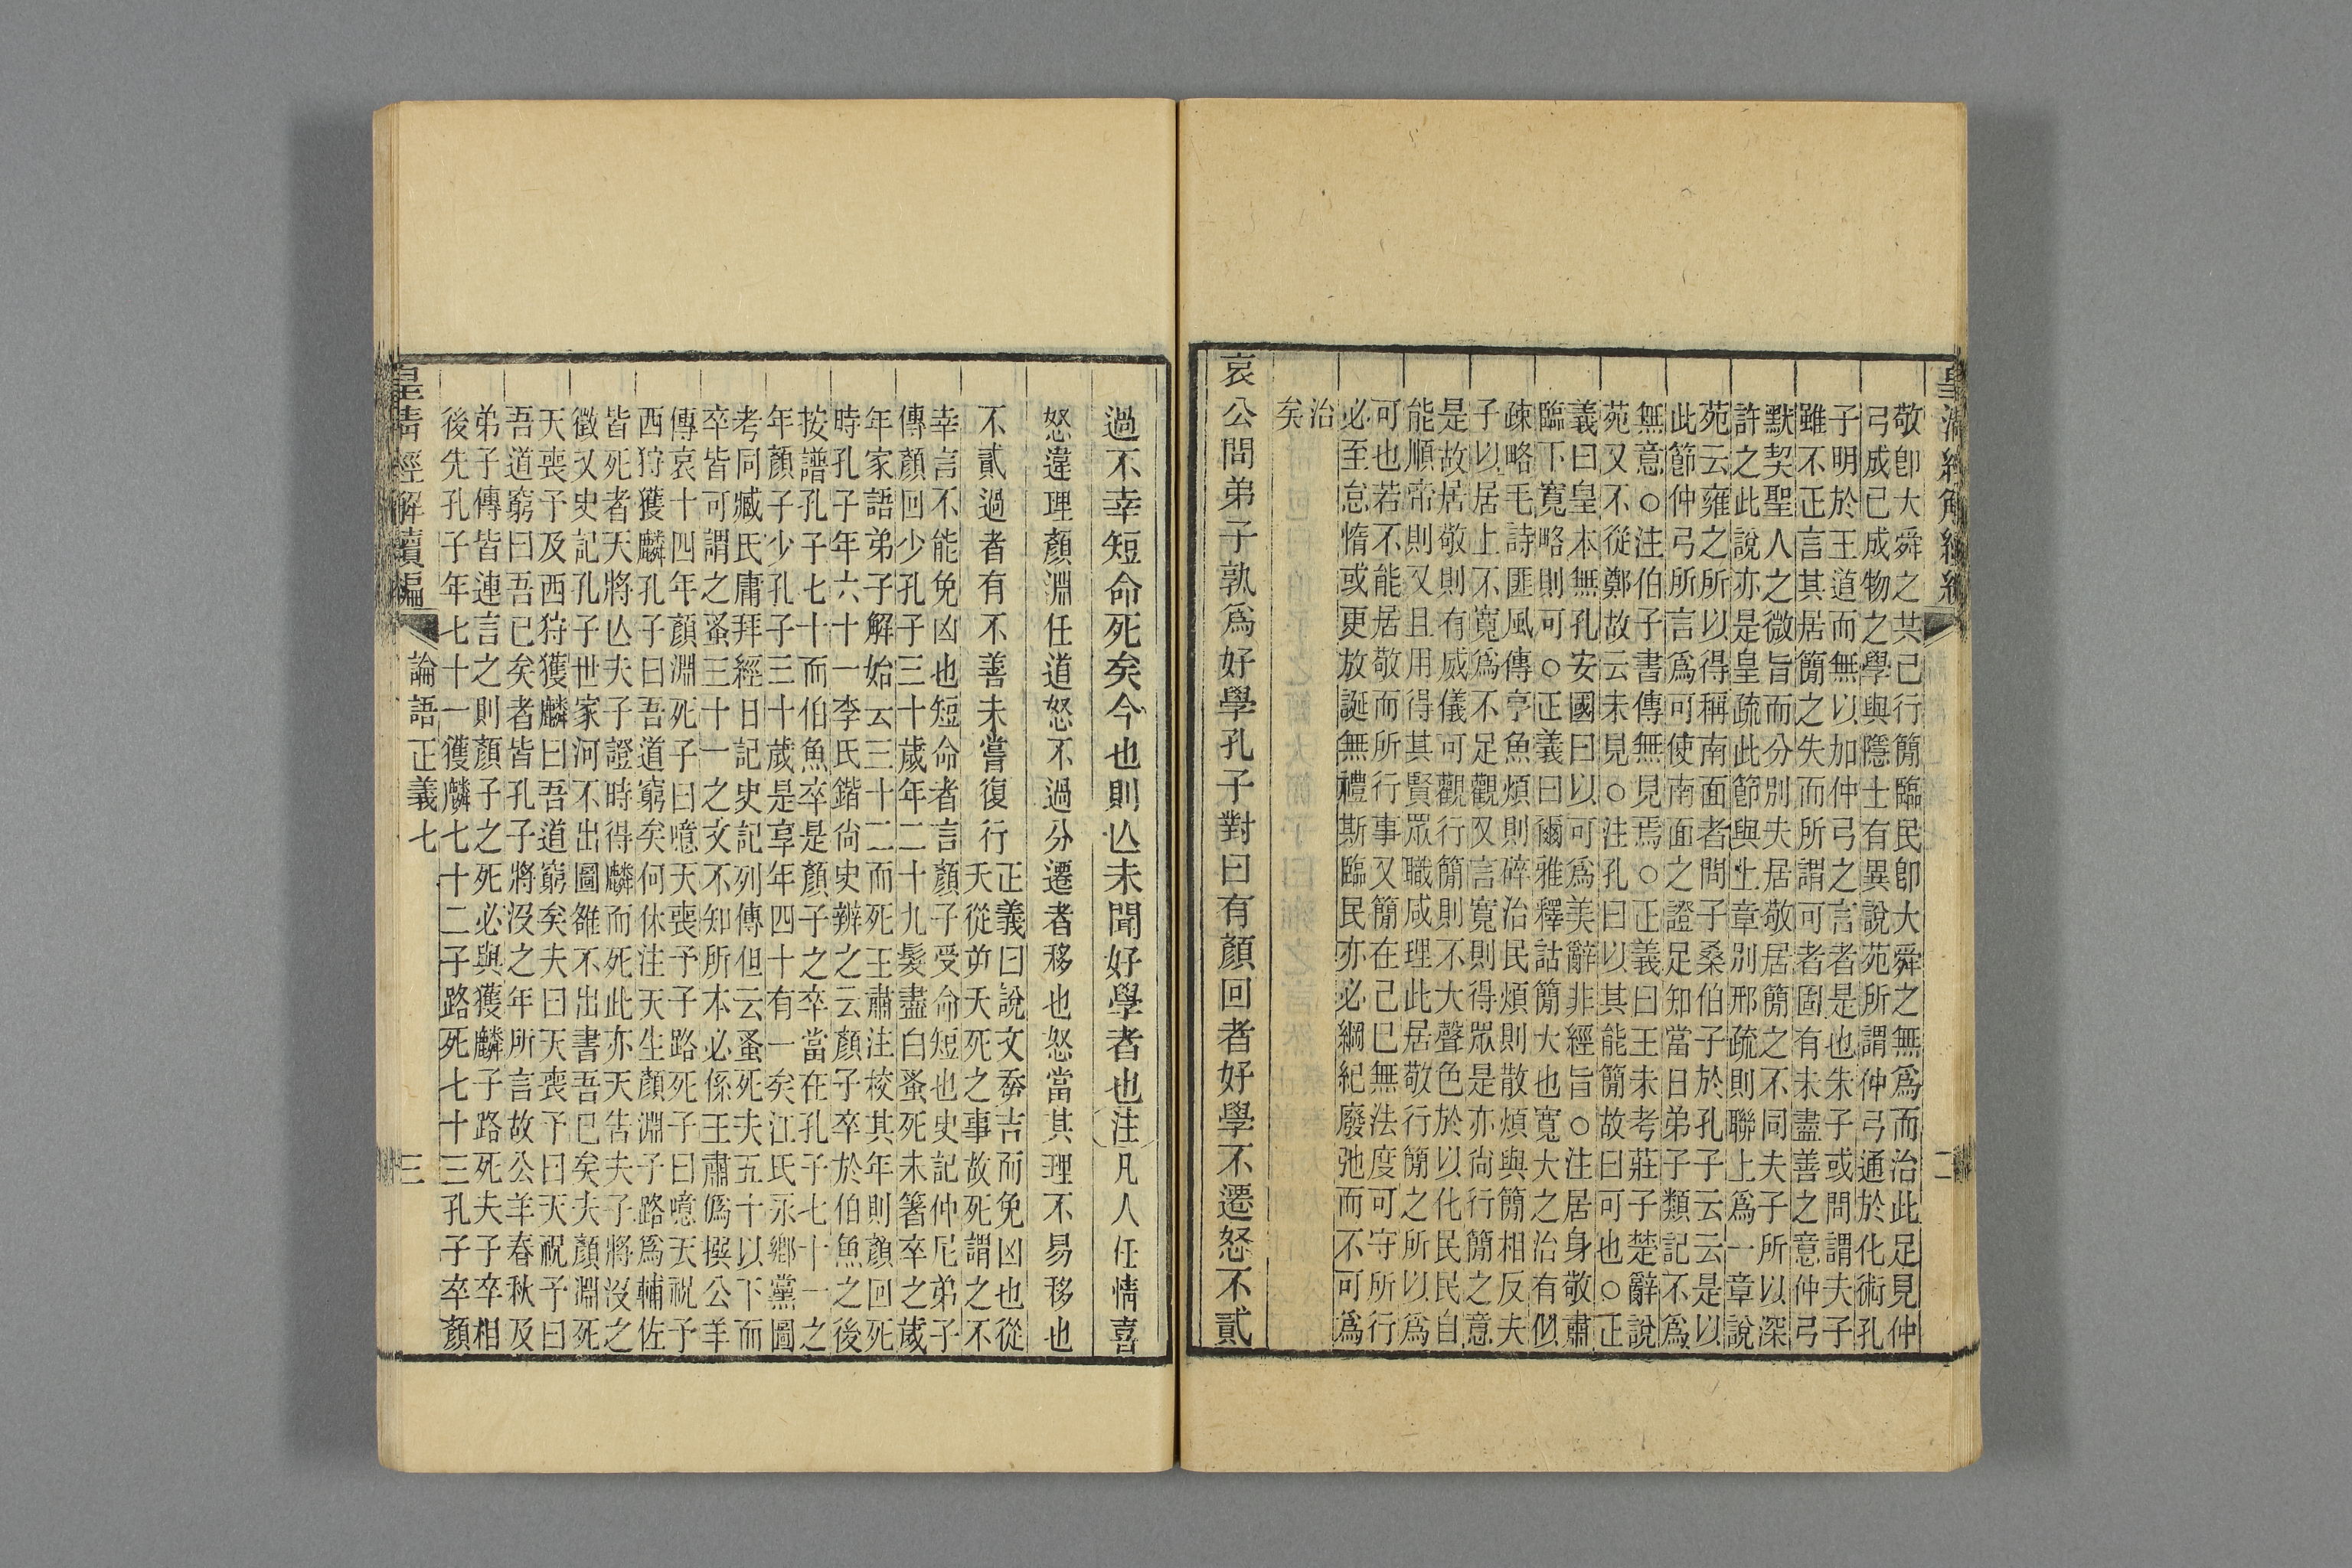 皇清經解續編
二
敬卽大舜之共己行簡臨民卽大舜之無爲而治此足見仲
弓成己成物之學與隱士有異說苑所謂仲弓通於化術孔
子明於王道而無以加仲弓之言者是也朱子或問謂夫子
雖不正言其居簡之失而所謂可者固有未盡善之意仲弓
默契聖人之微旨而分別夫居敬居簡之不同夫子所以深
許之此說亦是皇疏此節與上章別邢疏則聯上爲一章說
苑云雍之所以得稱南面者問子桑伯子於孔子云云是以
此節仲弓所言爲可使南面之證足知當日弟子類記不爲
無意○注伯子書傳無見焉○正義曰王未考莊子楚辭說
苑又不從鄭故云未見○注孔曰以其能簡故曰可也○正
義曰皇本無孔安國曰以可爲美辭非經旨○注居身敬肅
臨下寬略則可○正義曰爾雅釋詁簡大也寬大之治有似
疎略毛詩匪風傳亨魚煩則碎治民煩則散煩與簡相反夫
子以居上不寬爲不足觀又言寬則得眾是亦尚行簡之意
是故居敬則有威儀可觀行簡則不大聲色於以化民民自
能順帝則又且用得其賢眾職咸理此居敬行簡之所以爲
可也若不能居敬而所行事又簡在己已無法度可守所行
必至怠惰或更放誕無禮斯臨民亦必綱紀廢弛而不可爲
治
矣
哀公問弟子孰爲好學孔子對曰有顏回者好學不遷怒不貳
過不幸短命死矣今也則亾未聞好學者也注凡人任情喜
怒違理顏淵任道怒不過分遷者移也怒當其理不易移也
不貳過者有不善未嘗復行
正義曰說文𡴘吉而免凶也從
夭從屰夭死之事故死謂之不
幸言不能免凶也短命者言顏子受命短也史記仲尼弟子
傳顏回少孔子三十歲年二十九髮盡白蚤死未箸卒之歲
年家語弟子解始云三十二而死王肅注校其年則顏回死
時孔子年六十一李氏鍇尚史辨之云顏子卒於伯魚之後
按譜孔子七十而伯魚卒是顏子之卒當在孔子七十一之
年顏子少孔子三十歲是享年四十有一矣江氏永鄉黨圖
考同臧氏庸拜經日記史記列傳但云蚤死夫五十以下而
卒皆可謂之蚤三十一之文不知所本必係王肅僞撰公羊
傳哀十四年顏淵死子曰噫天喪予子路死子曰噫天祝予
西狩獲麟孔子曰吾道窮矣何休注天生顏淵子路爲輔佐
皆死者天將亾夫子證時得麟而死此亦天吿夫子將沒之
徵又史記孔子世家河不出圖雒不出書吾已矣夫顏淵死
天喪予及西狩獲麟曰吾道窮矣夫曰天喪予曰天祝予曰
吾道窮曰吾已矣者皆孔子將沒之年所言故公羊春秋及
弟子傳皆連言之則顏子之死必與獲麟子路死夫子卒相
後先孔子年七十一獲麟七十二子路死七十三孔子卒顏
皇清經解續編
論語正義七
三